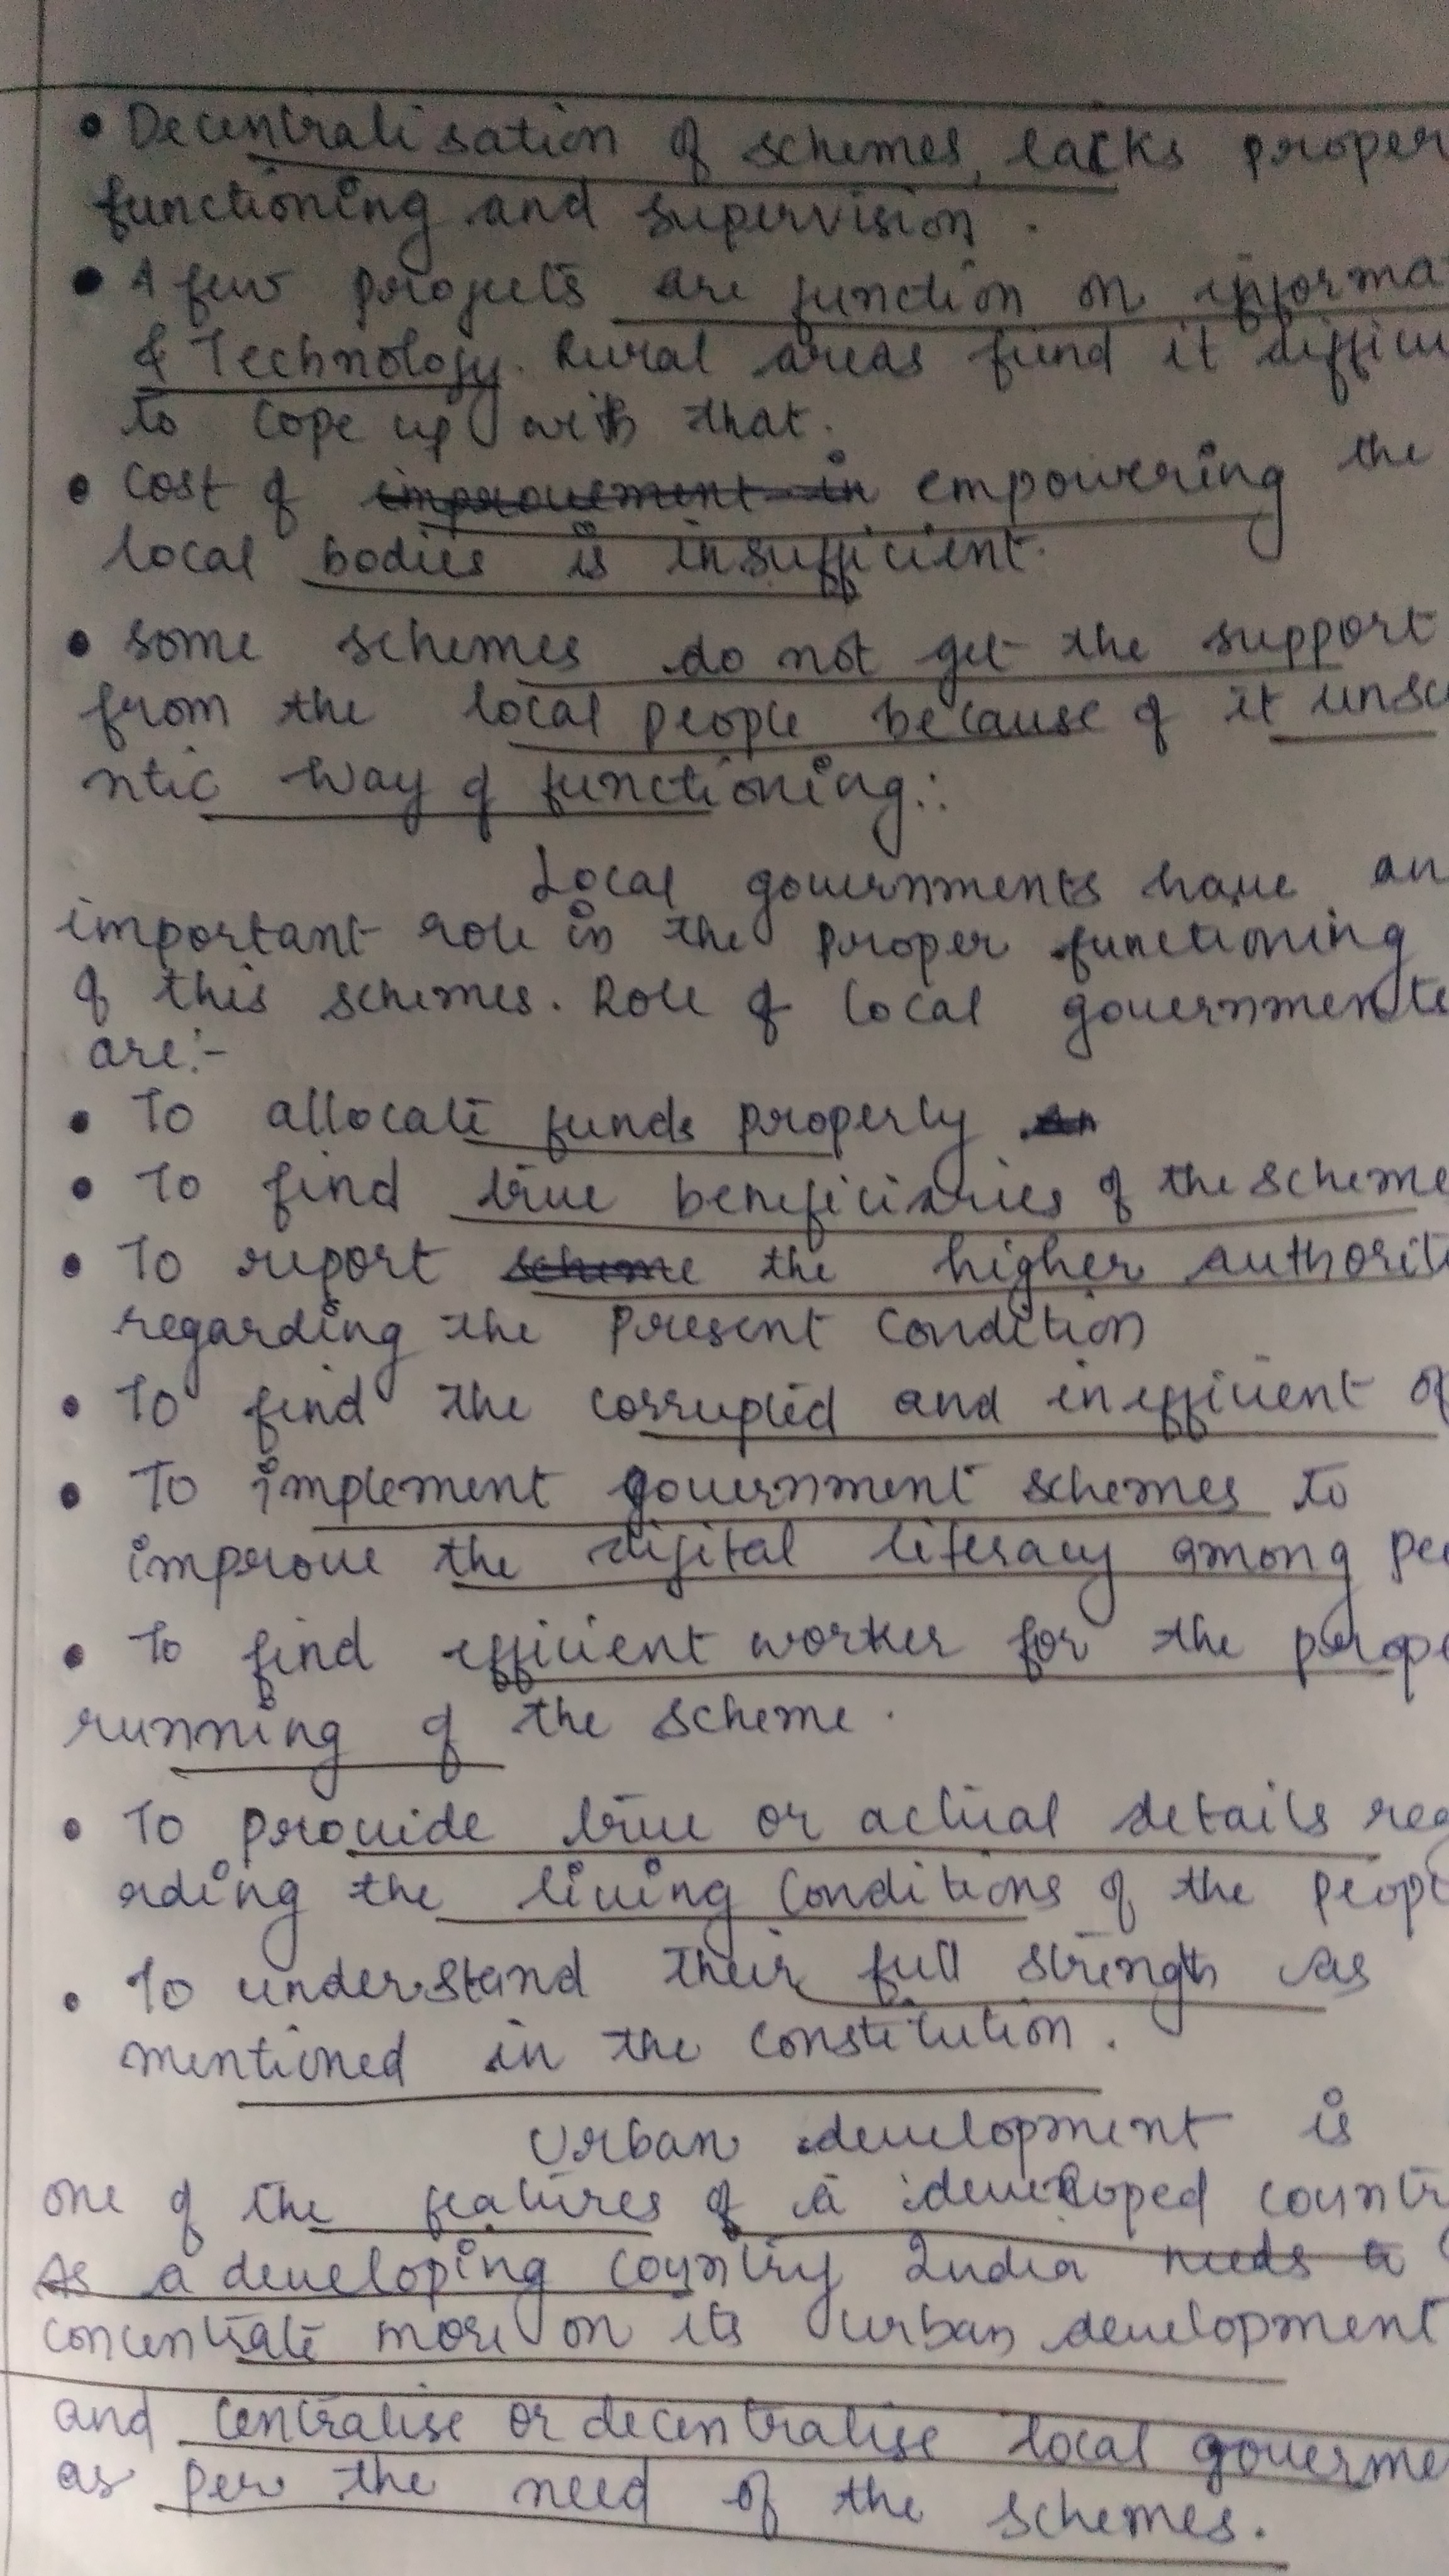 • Decentralisation of schemes, lacks proper
functioning and supervision.
• A few projects are function on informa
& Technology. Rural areas find it difficu
to cope up with that.
• Cost of improvement in empowering the
local bodies is insufficient.
• Some schemes do not get the support
from the local people because of it unsc
ntic way of functioning.:
Local governments have an
important role in the proper functioning
of this schemes. Role of local governments
are:-
• To allocate funds properly
• To find true beneficiaries of the scheme
• To report scheme the higher authorit
regarding the present condition
• To find the corrupted and inefficient of
• To implement government schemes to
improve the digital literacy among pe
• To find efficient worker for the prope
running of the scheme.
• To provide true or actual details reg
rding the living conditions of the peopl
• To understand their full strength as
mentioned in the constitution.
Urban development is
one of the features of a developed countr
As a developing country India needs to
concentrate more on its urban development
and centralise or decentralise local governme
as per the need of the schemes.